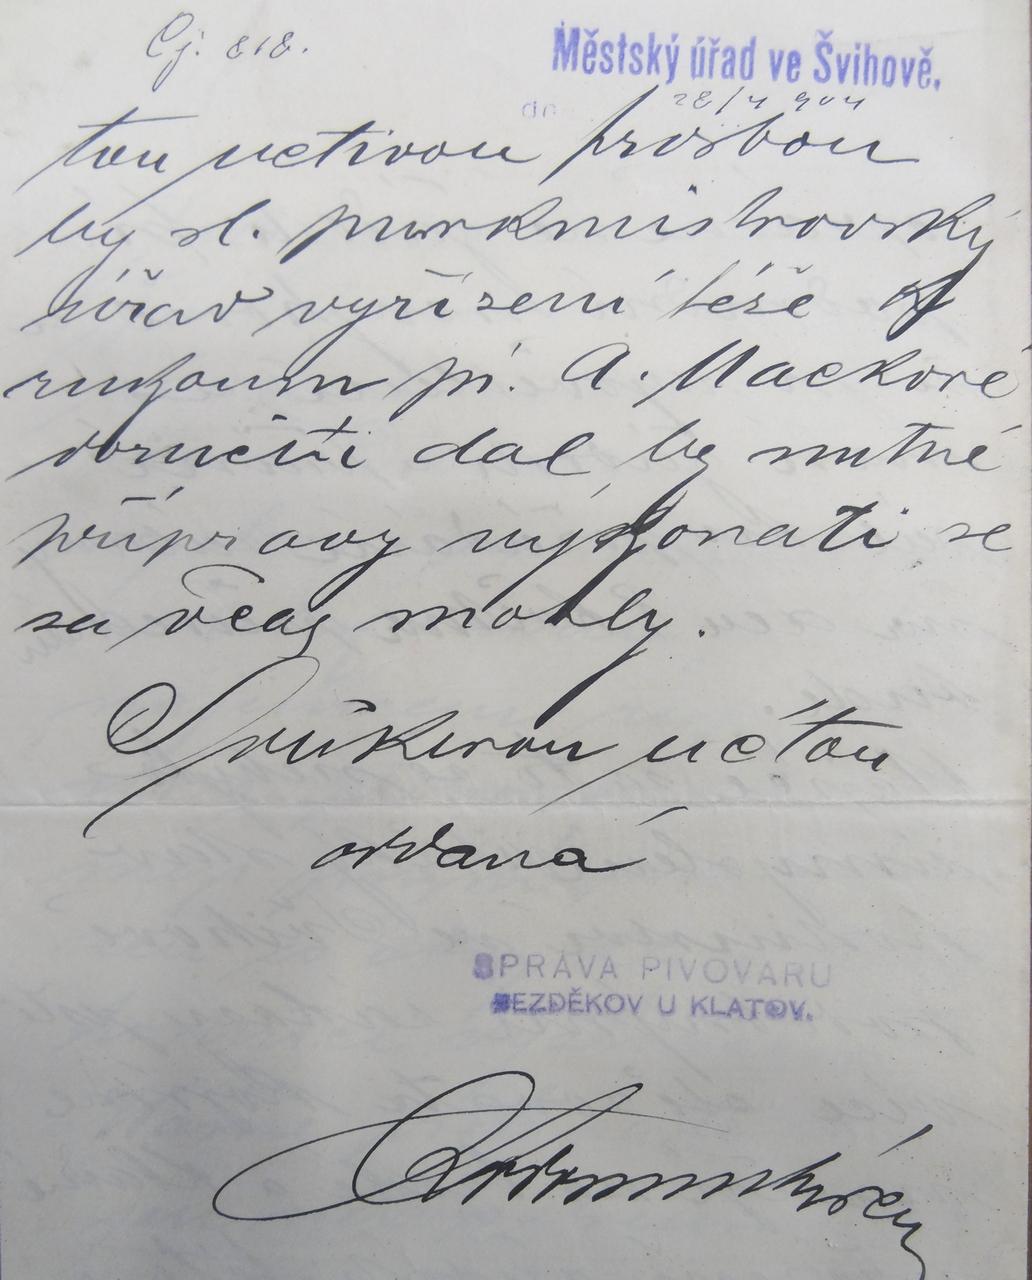 Čj. 818.
Městský úřad ve Švihově.
dne 28/4 904
tou uctivou prosbou
by sl. purkmistrovský
úřad vyřízení téže k
rukoum pí. A. Mackové
doručiti dal by nutné
přípravy vykonati se
za včas mohly.
S veškerou úctou
oddaná
SPRÁVA PIVOVARU
BEZDĚKOV U KLATOV.